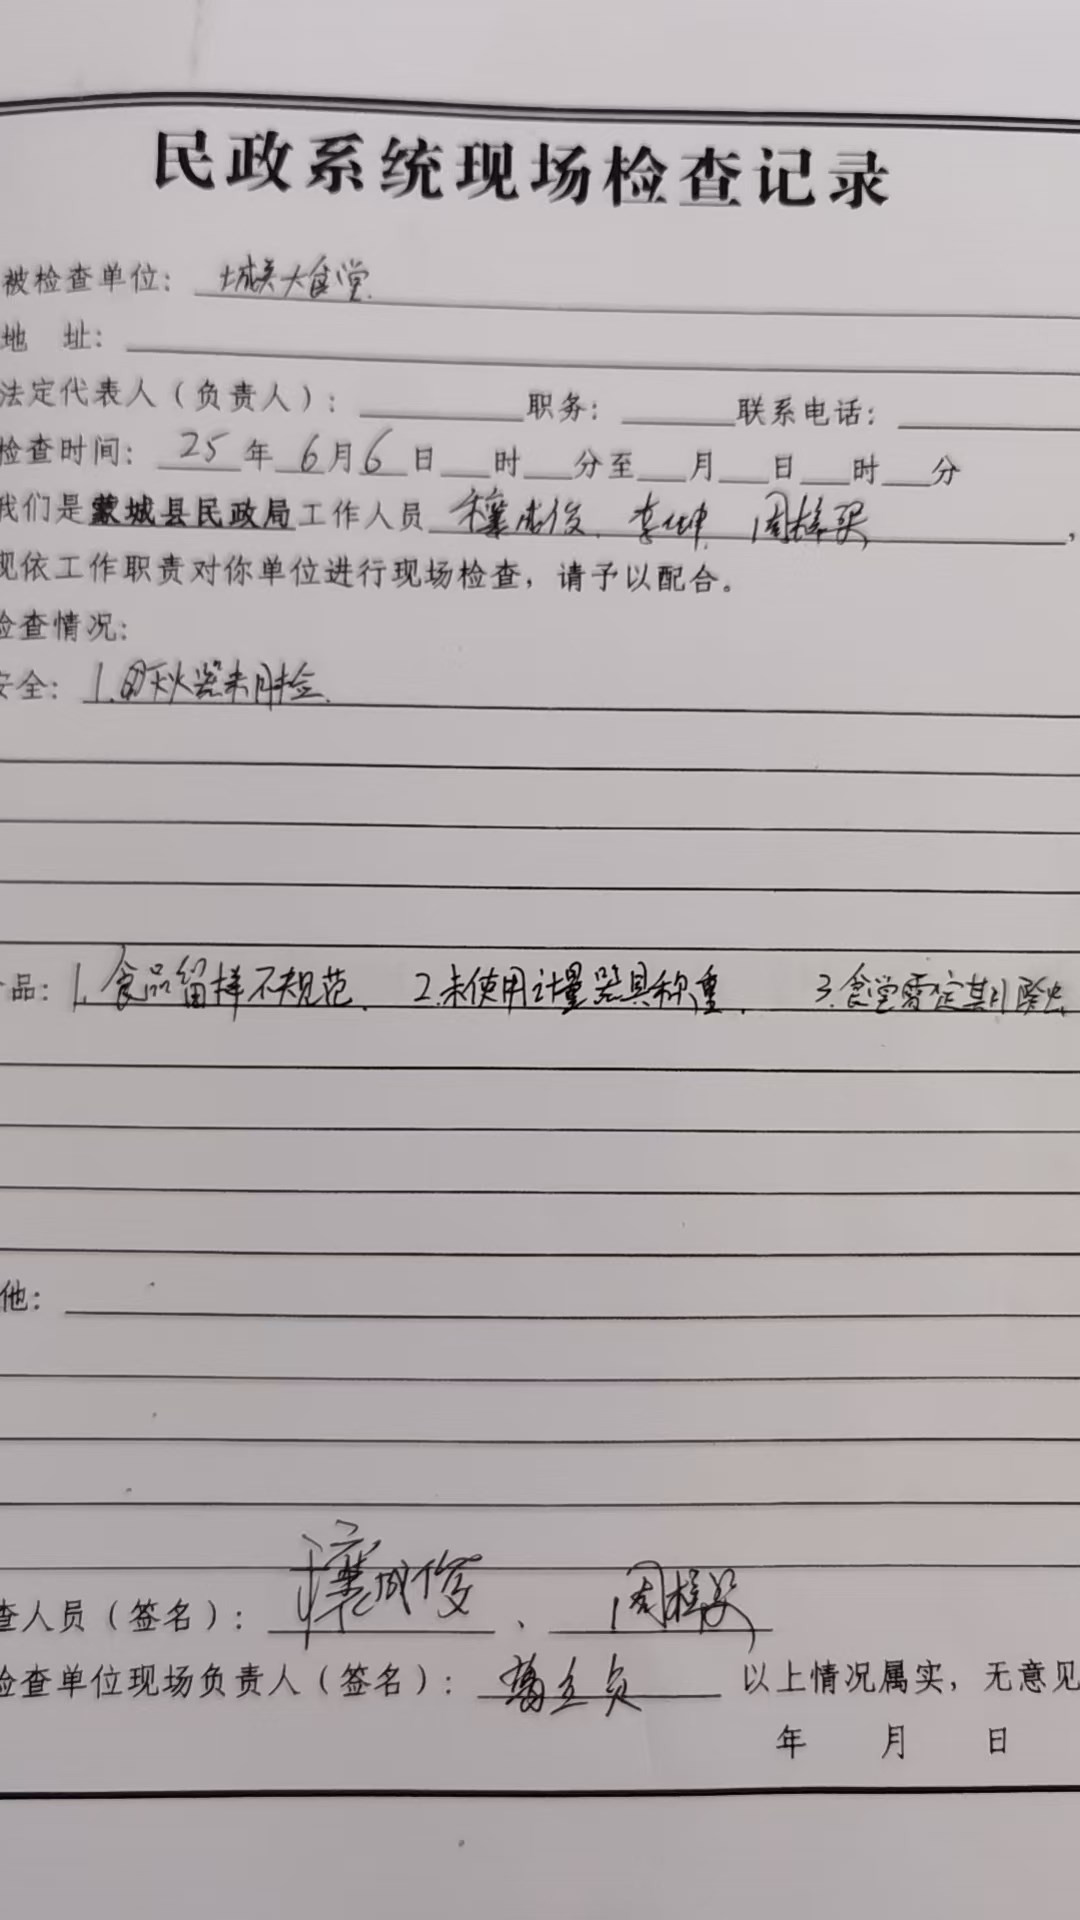 民政系统现场检查记录
被检查单位：城关大食堂
地 址：
法定代表人（负责人）： 职务： 联系电话：
检查时间：25年6月6日 时 分至 月 日 时 分
我们是蒙城县民政局工作人员 李坤 ，
现依工作职责对你单位进行现场检查，请予以配合。
检查情况：
安全：1. 灭火器未月检.
品：1. 食品留样不规范. 2.未使用计量器具称重. 3.食堂需定期除虫.
他：
查人员（签名）： 、
检查单位现场负责人（签名）： 以上情况属实，无意见
年 月 日